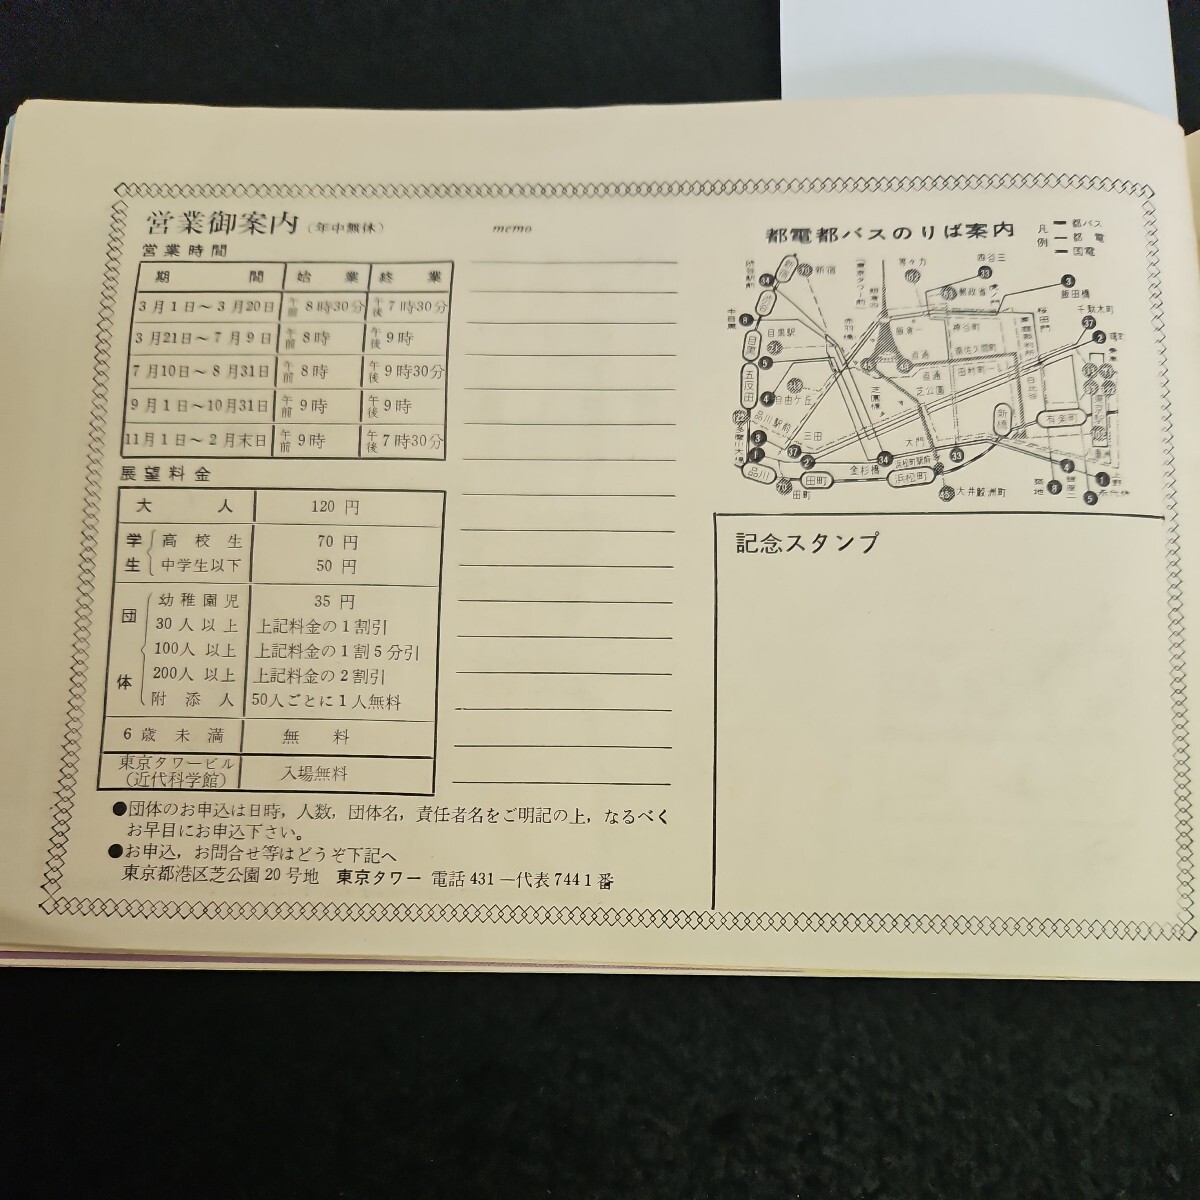 営業御案内(年中無休)
営業時間
期 間 始 業 終 業
3月1日〜3月20日 午前8時30分 午後7時30分
3月21日〜7月9日 午前8時 午後9時
7月10日〜8月31日 午前8時 午後9時30分
9月1日〜10月31日 午前9時 午後9時
11月1日〜2月末日 午前9時 午後7時30分
展望料金
大 人 120円
学生 高校生 70円
中学生以下 50円
団体 幼稚園児 35円
30人以上 上記料金の1割引
100人以上 上記料金の1割5分引
200人以上 上記料金の2割引
附添人 50人ごとに1人無料
6歳未満 無 料
東京タワービル
(近代科学館) 入場無料
●団体のお申込は日時,人数,団体名,責任者名をご明記の上,なるべく
お早目にお申込下さい。
●お申込,お問合せ等はどうぞ下記へ
東京都港区芝公園20号地 東京タワー 電話431―代表7441番
memo
都電都バスのりば案内
凡例
都バス
都電
国電
渋谷駅前
34
新宿
新宿
等々力
四谷三
33
郵政省
虎ノ門
3
飯田橋
桜田門
千駄木町
37
2
渋谷
(東京タワー前)
中目黒
8
目黒駅
赤羽橋
飯倉一
神谷町
目黒
5
南佐久間町
田村町一
五反田
4
自由ケ丘
芝園橋
芝公園
日比谷
品川駅前
三田
大門
新橋
有楽町
3
1
37
2
34
33
4
1
品川
田町
田町
金杉橋
浜松町駅前
浜松町
45
大井鮫洲町
築地
8
銀座二
5
上野
記念スタンプ